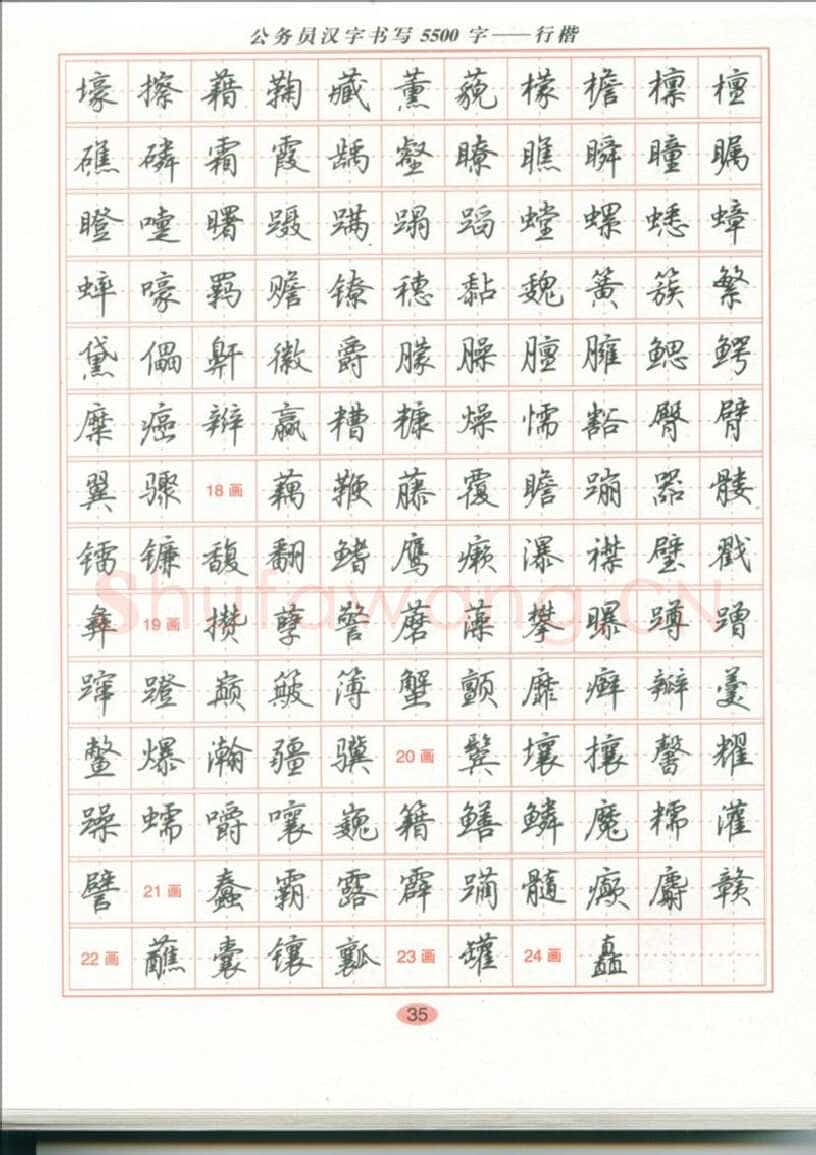 公务员汉字书写 5500 字——行楷
壕 擦 藉 鞠 藏 薰 藐 檬 檐 檩 檀
礁 磷 霜 霞 龋 壑 瞭 瞧 瞬 瞳 瞩
瞪 嚏 曙 蹑 蹒 蹋 蹈 螳 螺 蟋 蟑
蟀 嚎 羁 赡 镣 穗 黏 魏 簧 簇 繁
黛 儡 鼾 徽 爵 朦 臊 膻 臃 鳃 鳄
糜 癌 辫 赢 糟 糠 燥 懦 豁 臀 臂
翼 骤 18 画 藕 鞭 藤 覆 瞻 蹦 嚣 髅
镭 镰 馥 翻 鳍 鹰 癞 瀑 襟 璧 戳
彝 19 画 攒 孽 警 蘑 藻 攀 曝 蹲 蹭
蹿 蹬 巅 簸 簿 蟹 颤 靡 癣 瓣 羹
鳖 爆 瀚 疆 骥 20 画 鬓 壤 攘 馨 耀
躁 蠕 嚼 嚷 巍 籍 鳝 鳞 魔 糯 灌
譬 21 画 蠢 霸 露 霹 躏 髓 癫 麝 赣
22 画 蘸 囊 镶 瓤 23 画 罐 24 画 矗
35
Shufawang.CN